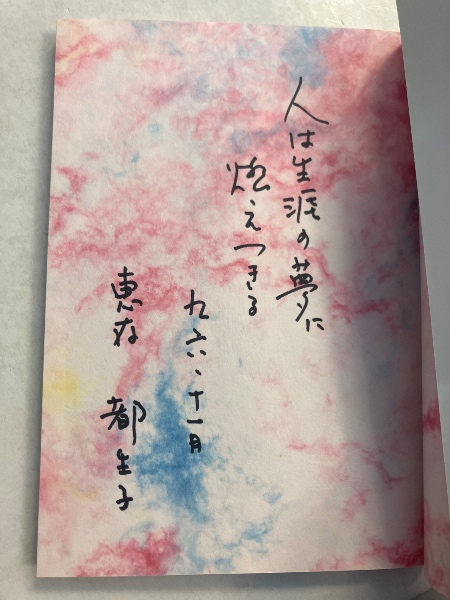 人は生涯の夢に
燃えつきる
九六、十一月
恵存 都生子